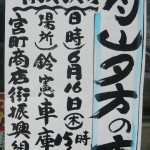 山夕方の
日時)6月16日(木)15時
場所)鈴憲車庫
宮町商店街振興組